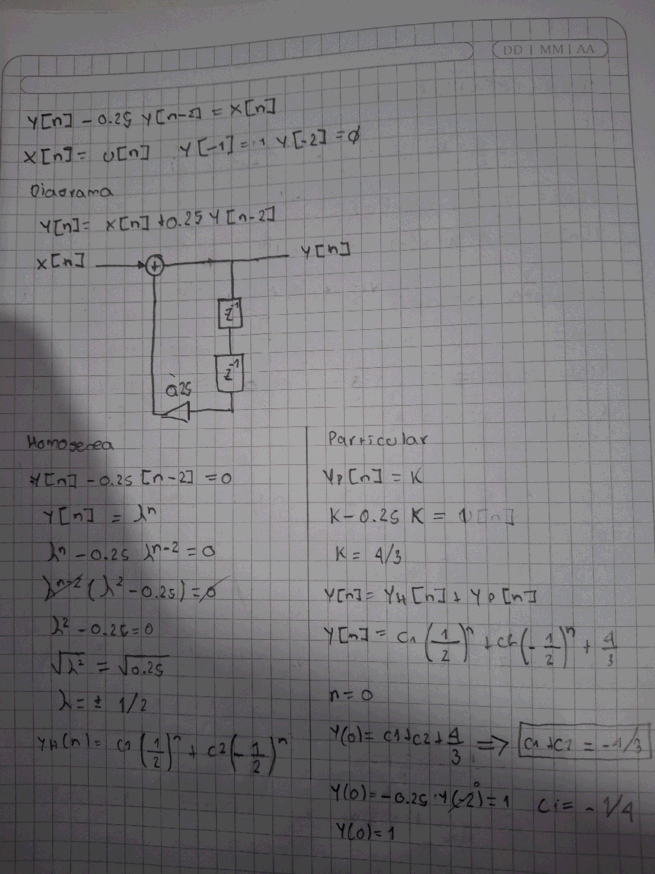 DD | MM | AA
Y[n] - 0.25 Y[n-2] = X[n]
X[n] = U[n]  Y[-1] = 1  Y[-2] = 0
Diagrama
Y[n] = X[n] + 0.25 Y[n-2]
X[n]  +  Y[n]
z⁻¹
z⁻¹
0.25
Homogenea
Y[n] - 0.25 [n-2] = 0
Y[n] = λⁿ
λⁿ - 0.25 λⁿ⁻² = 0
λⁿ⁻² (λ² - 0.25) = 0
λ² - 0.25 = 0
√λ² = √0.25
λ = ± 1/2
YH(n) = C1 (1/2)ⁿ + C2 (-1/2)ⁿ
Particular
YP[n] = K
K - 0.25 K = 1
K = 4/3
Y[n] = YH[n] + YP[n]
Y[n] = C1 (1/2)ⁿ + C2 (-1/2)ⁿ + 4/3
n = 0
Y(0) = C1 + C2 + 4/3 ⇒ C1 + C2 = -1/3
Y(0) = -0.25 · Y(-2)⁰ = 1  Ci = - 1/4
Y(0) = 1